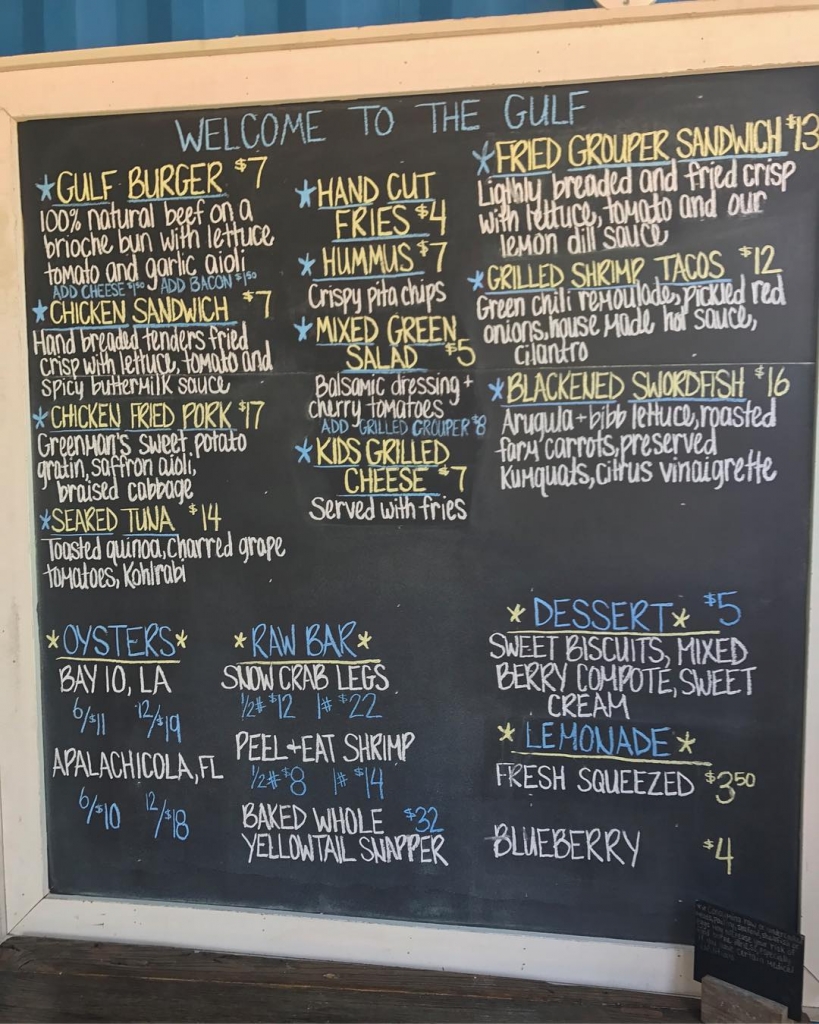 WELCOME TO THE GULF
*GULF BURGER $7
100% natural beef on a
brioche bun with lettuce
tomato and garlic aioli
ADD CHEESE $1.50 / ADD BACON $1.50
*CHICKEN SANDWICH $7
Hand breaded tenders fried
crisp with lettuce, tomato and
spicy buttermilk sauce
*CHICKEN FRIED PORK $17
Greenman's sweet potato
gratin, saffron aioli,
braised cabbage
*SEARED TUNA $14
Toasted quinoa, charred grape
tomatoes, Kohlrabi
*HAND CUT
FRIES $4
*HUMMUS $7
Crispy pita chips
*MIXED GREEN
SALAD $5
Balsamic dressing +
cherry tomatoes
ADD GRILLED GROUPER $8
*KIDS GRILLED
CHEESE $7
Served with fries
*FRIED GROUPER SANDWICH $13
Ligthly breaded and fried crisp
with lettuce, tomato and our
lemon dill sauce
*GRILLED SHRIMP TACOS $12
Green chili remoulade, pickled red
onions, house made hot sauce,
cilantro
*BLACKENED SWORDFISH $16
Arugula + bibb lettuce, roasted
farm carrots, preserved
Kumquats, citrus vinaigrette
*OYSTERS*
BAY 10, LA
6/$11 12/$19
APALACHICOLA, FL
6/$10 12/$18
*RAW BAR*
SNOW CRAB LEGS
1/2# $12 1# $22
PEEL + EAT SHRIMP
1/2# $8 1# $14
BAKED WHOLE $32
YELLOWTAIL SNAPPER
*DESSERT* $5
SWEET BISCUITS, MIXED
BERRY COMPOTE, SWEET
CREAM
*LEMONADE*
FRESH SQUEEZED $3.50
BLUEBERRY $4